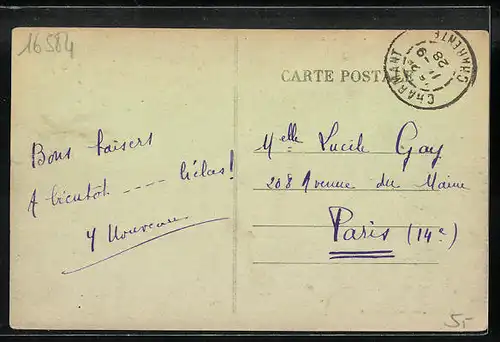 16584
CARTE POSTALE
CHARMANT
CHARENTE
28 -9
Bons baisers
A bientôt ---- hélas!
Y Nouveau
Melle Lucile Gay
208 Avenue du Maine
Paris (14e)
5,-